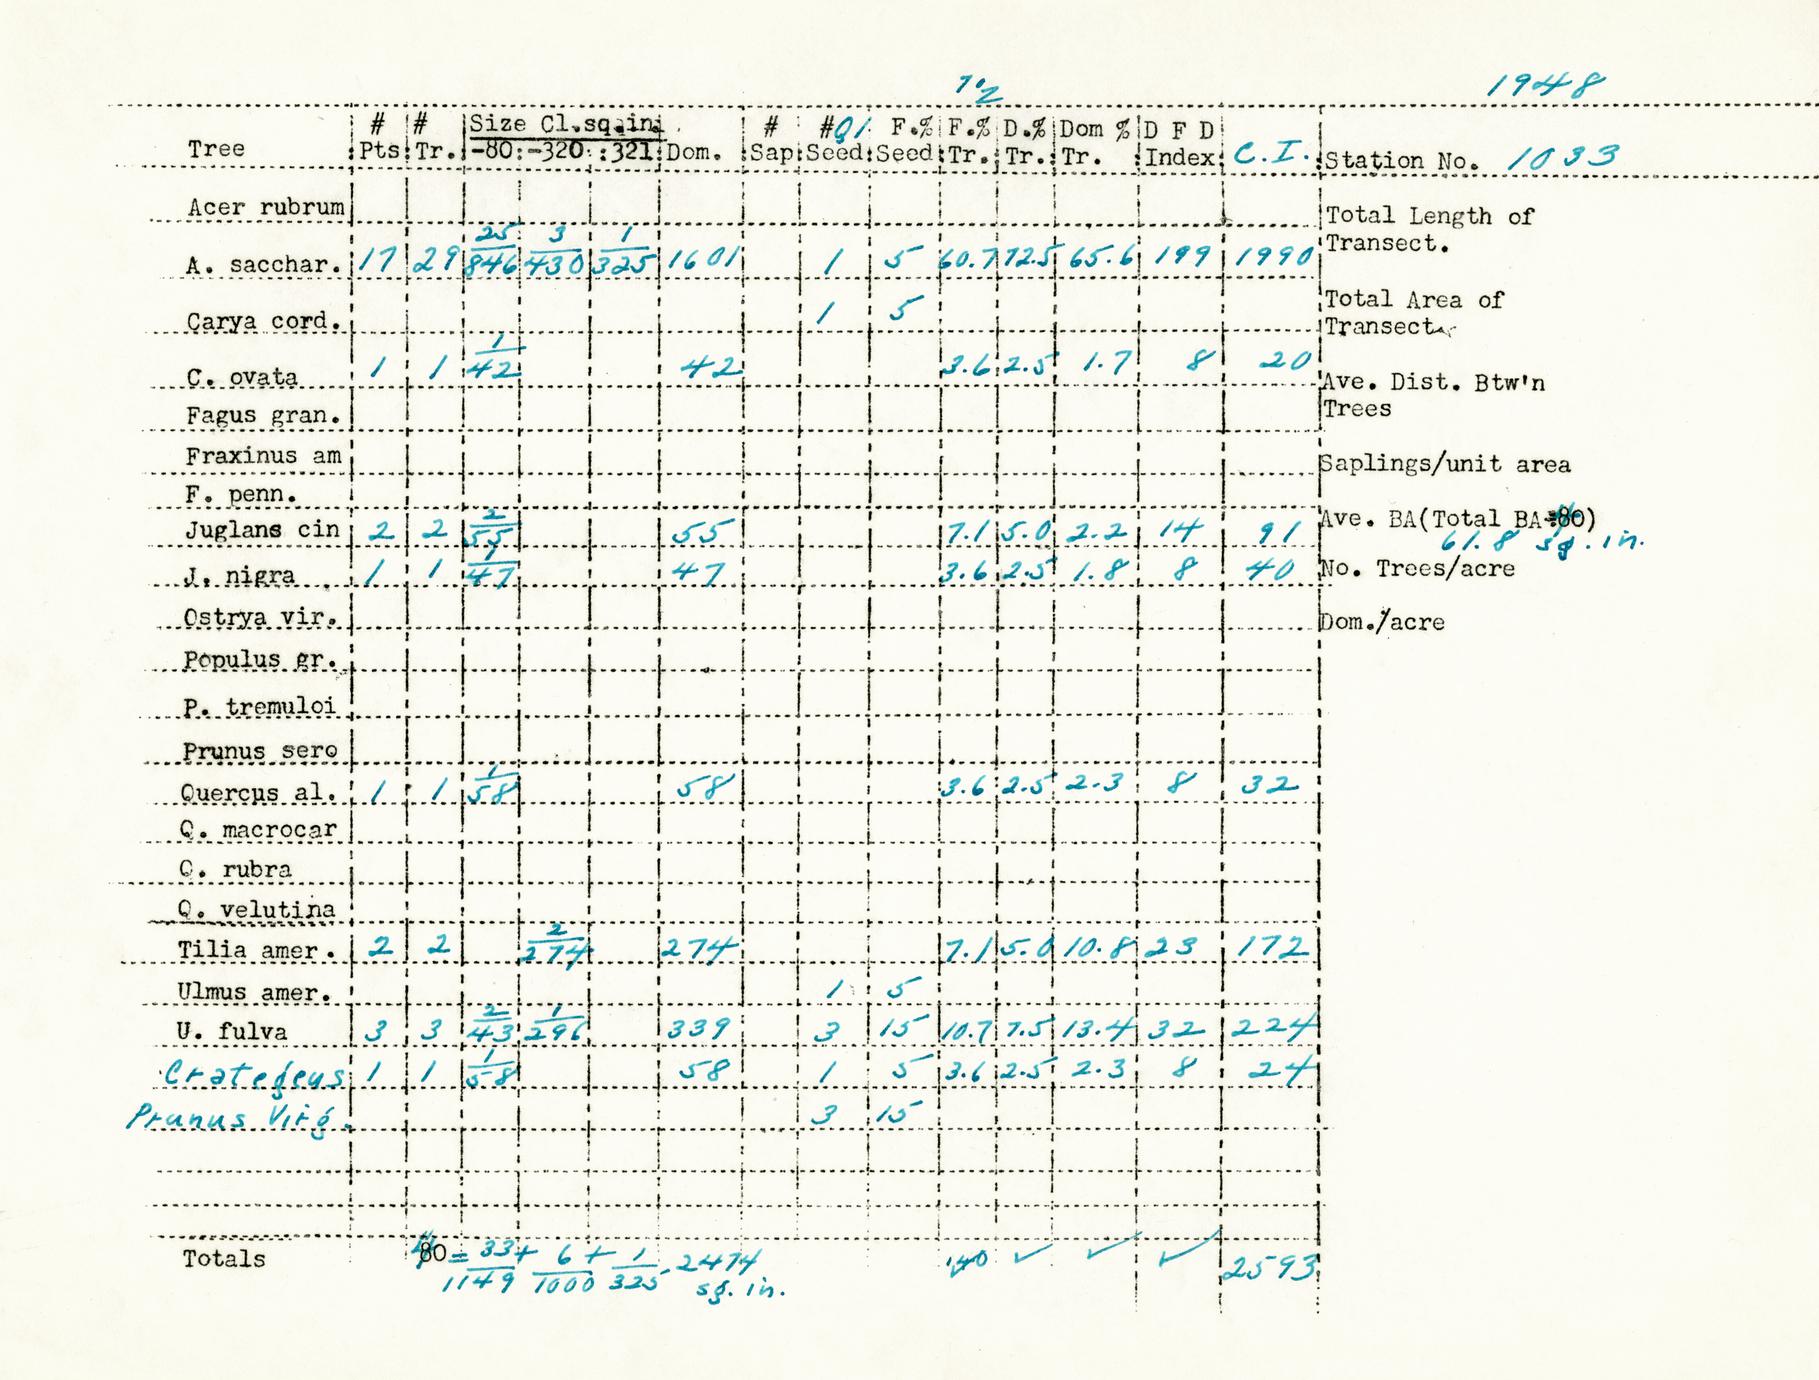 7 1/2 1948
Tree # Pts # Tr. Size Cl.sq.in. -80 -320 321 Dom. # Sap # Q1 Seed F.% Seed F.% Tr. D.% Tr. Dom % Tr. D F D Index C.I. Station No. 1033
Acer rubrum
Total Length of
Transect.
A. sacchar. 17 29 25/846 3/430 1/325 1601 1 5 60.7 72.5 65.6 199 1990
Total Area of
Transect
Carya cord. 1 5
C. ovata 1 1 1/42 42 3.6 2.5 1.7 8 20
Ave. Dist. Btw'n
Trees
Fagus gran.
Fraxinus am
Saplings/unit area
F. penn.
Juglans cin 2 2 2/55 55 7.1 5.0 2.2 14 91
Ave. BA(Total BA÷80)
61.8 sq. in.
J. nigra 1 1 1/47 47 3.6 2.5 1.8 8 40
No. Trees/acre
Ostrya vir.
Dom./acre
Populus gr.
P. tremuloi
Prunus sero
Quercus al. 1 1 1/58 58 3.6 2.5 2.3 8 32
Q. macrocar
Q. rubra
Q. velutina
Tilia amer. 2 2 2/274 274 7.1 5.0 10.8 23 172
Ulmus amer. 1 5
U. fulva 3 3 2/43 1/296 339 3 15 10.7 7.5 13.4 32 224
Crategeus 1 1 1/58 58 1 5 3.6 2.5 2.3 8 24
Prunus Virg. 3 15
Totals 80 = 33/1149 + 6/1000 + 1/325 2474 sq. in. ✓ ✓ ✓ 2593